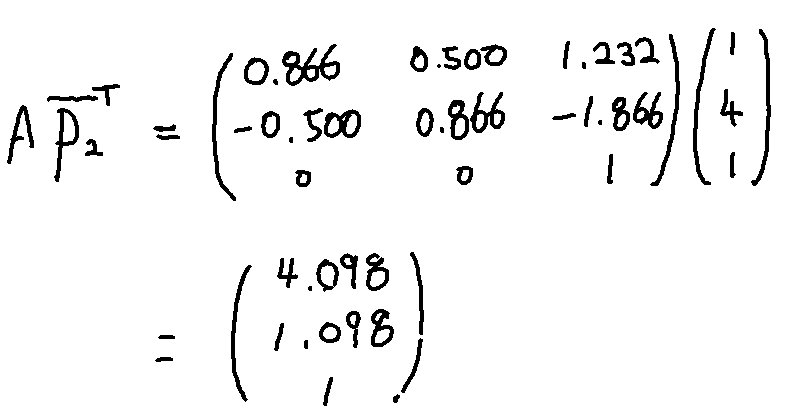 A p̄₂ᵀ = ( 0.866 0.500 1.232 ) ( 1 )
( -0.500 0.866 -1.866 ) ( 4 )
( 0 0 1 ) ( 1 )
= ( 4.098 )
( 1.098 )
( 1 )